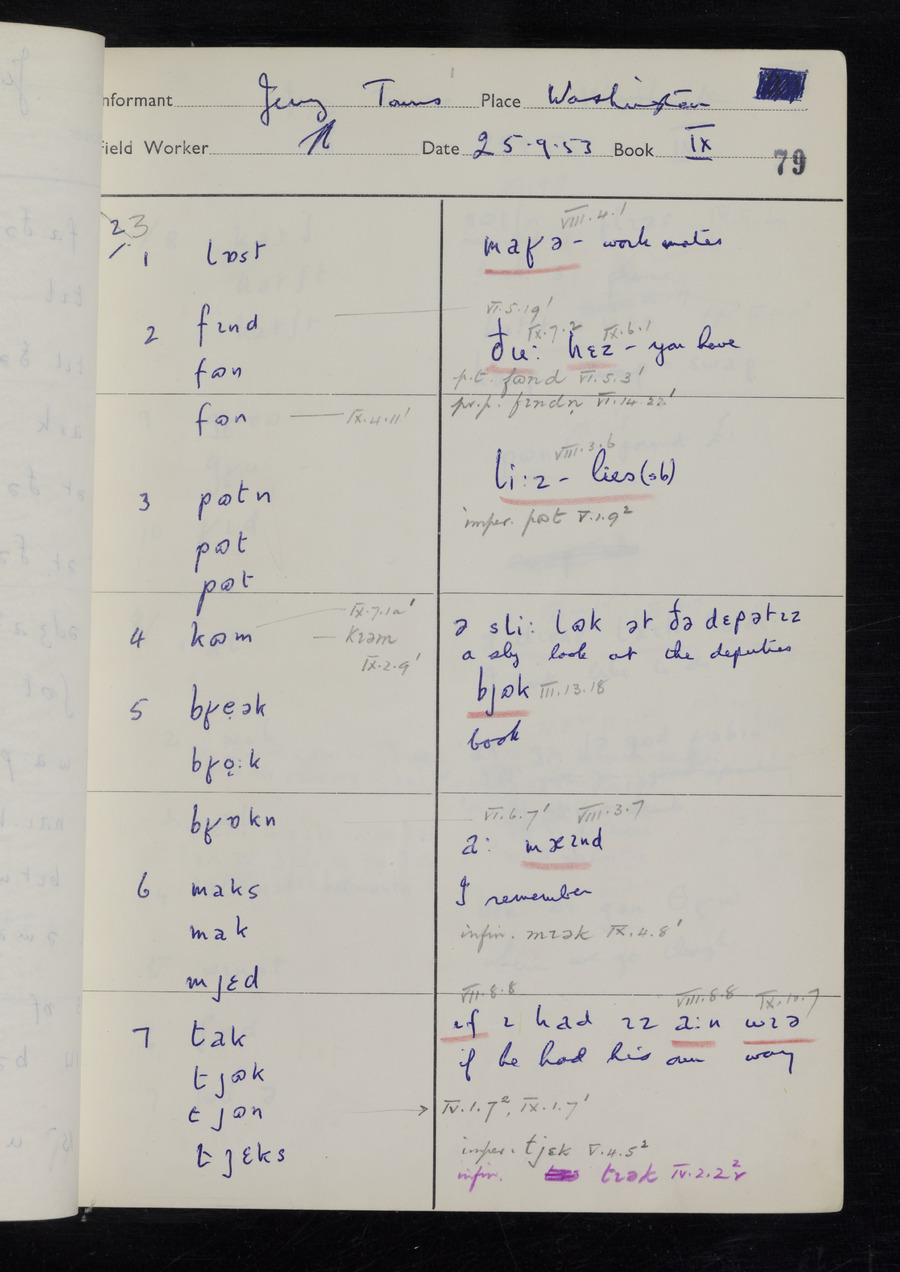 nformant Place Washington
ield Worker Date 25.9.53 Book IX
79
23
1 lɒst
2 fɪnd
fɵn
fɵn — IX.4.11'
3 pɵtn
pɵt
pɵt
IX.7.1a'
4 kɵm — kɪəm
IX.2.9'
5 bɾẹək
bɾọ:k
bɾɒkn
6 maks
mak
mjɛd
7 tak
tjɵk
tjɵn
tjɛks
VIII.4.1
maɾə - work mates
VI.5.19'
IX.7.2 IX.6.1
ðu: hɛz - you have
p.t. fɵnd VI.5.3'
pr.p. fɪndn̩ VI.14.22'
VIII.3.6
li:z - lies (sb)
imper. pɵt V.1.9²
ə sli: lɵk ət ðə dɛpətɪz
a sly look at the deputies
bjɵk III.13.18
book
VI.6.7' VIII.3.7
a: mæɪnd
I remember
infin. mɪək IX.4.8'
VII.8.8 VIII.8.8 IX.10.7
ɪf ɪ had ɪz a:n wɪə
if he had his own way
IV.1.7², IX.1.7'
imper. tjɛk V.4.5²
infin. tɪək IV.2.2²